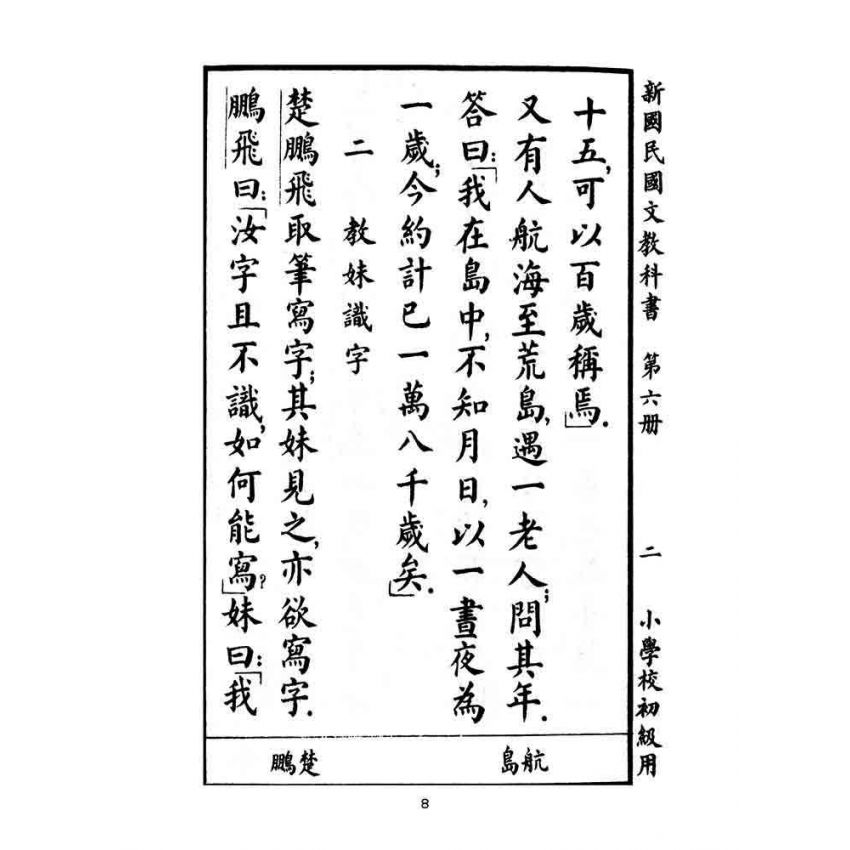 新國民國文教科書 第六册 二 小學校初級用
十五,可以百歲稱焉」.
又有人航海至荒島,遇一老人;問其年.
答曰:「我在島中,不知月日,以一晝夜為
一歲;今約計已一萬八千歲矣」.
二 教妹識字
楚鵬飛取筆寫字;其妹見之,亦欲寫字.
鵬飛曰:「汝字且不識,如何能寫?」妹曰:「我
航島
楚鵬
8